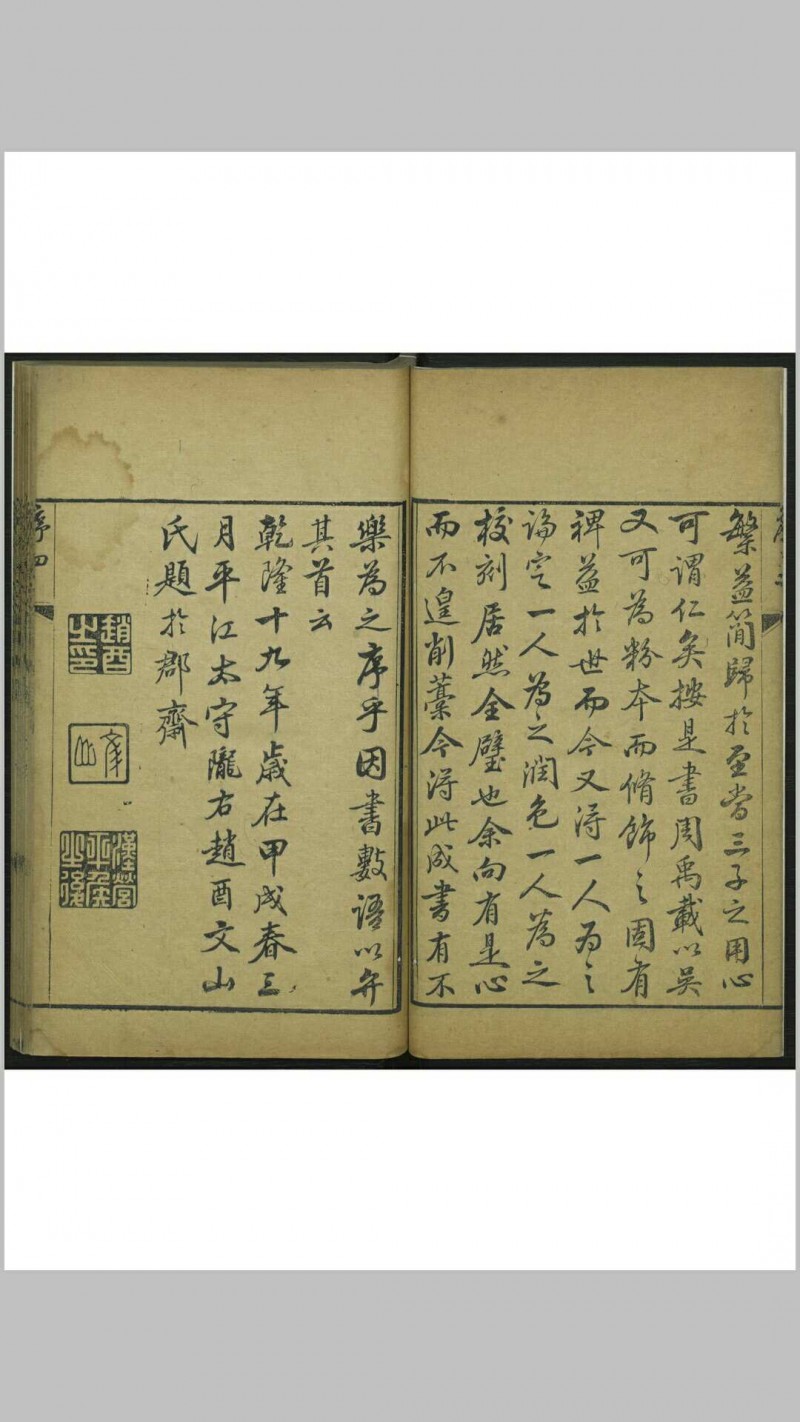 繁益簡歸於至當三子之用心
可謂仁矣按是書周禹載以吳
又可為粉本而脩飾之固有
裨益於世而今又得一人為之
論定一人為之潤色一人為之
校刻居然全璧也余向有是心
而不遑削藁今得此成書有不
樂為之序乎因書數語以弁
其首云
乾隆十九年歲在甲戌春三
月平江太守隴右趙酉文山
氏題於郡齋
趙酉之印
漢營平侯之後
序四